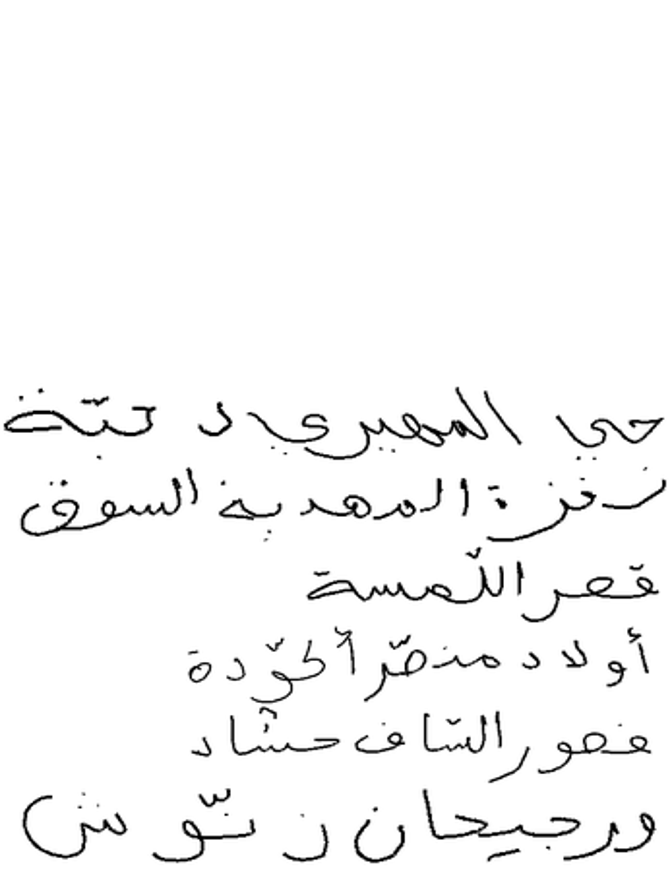 حي المهيري
المهدية السوق
قصر اللّمسة
أولاد منصّر أكوّدة
قصور السّاف حشّاد
ورجيحان زنّوش